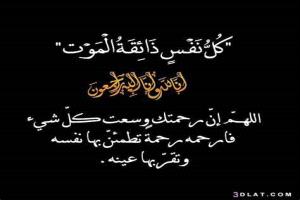 "كُلُّ نَفْسٍ ذَائِقَةُ الْمَوْتِ"
إنا لله وإنا إليه راجعون
اللهمّ إنّ رحمتك وسعت كلّ شيء
فارحمه رحمةً تطمئنّ بها نفسه
وتقرّ بها عينه .
3DLAT.COM